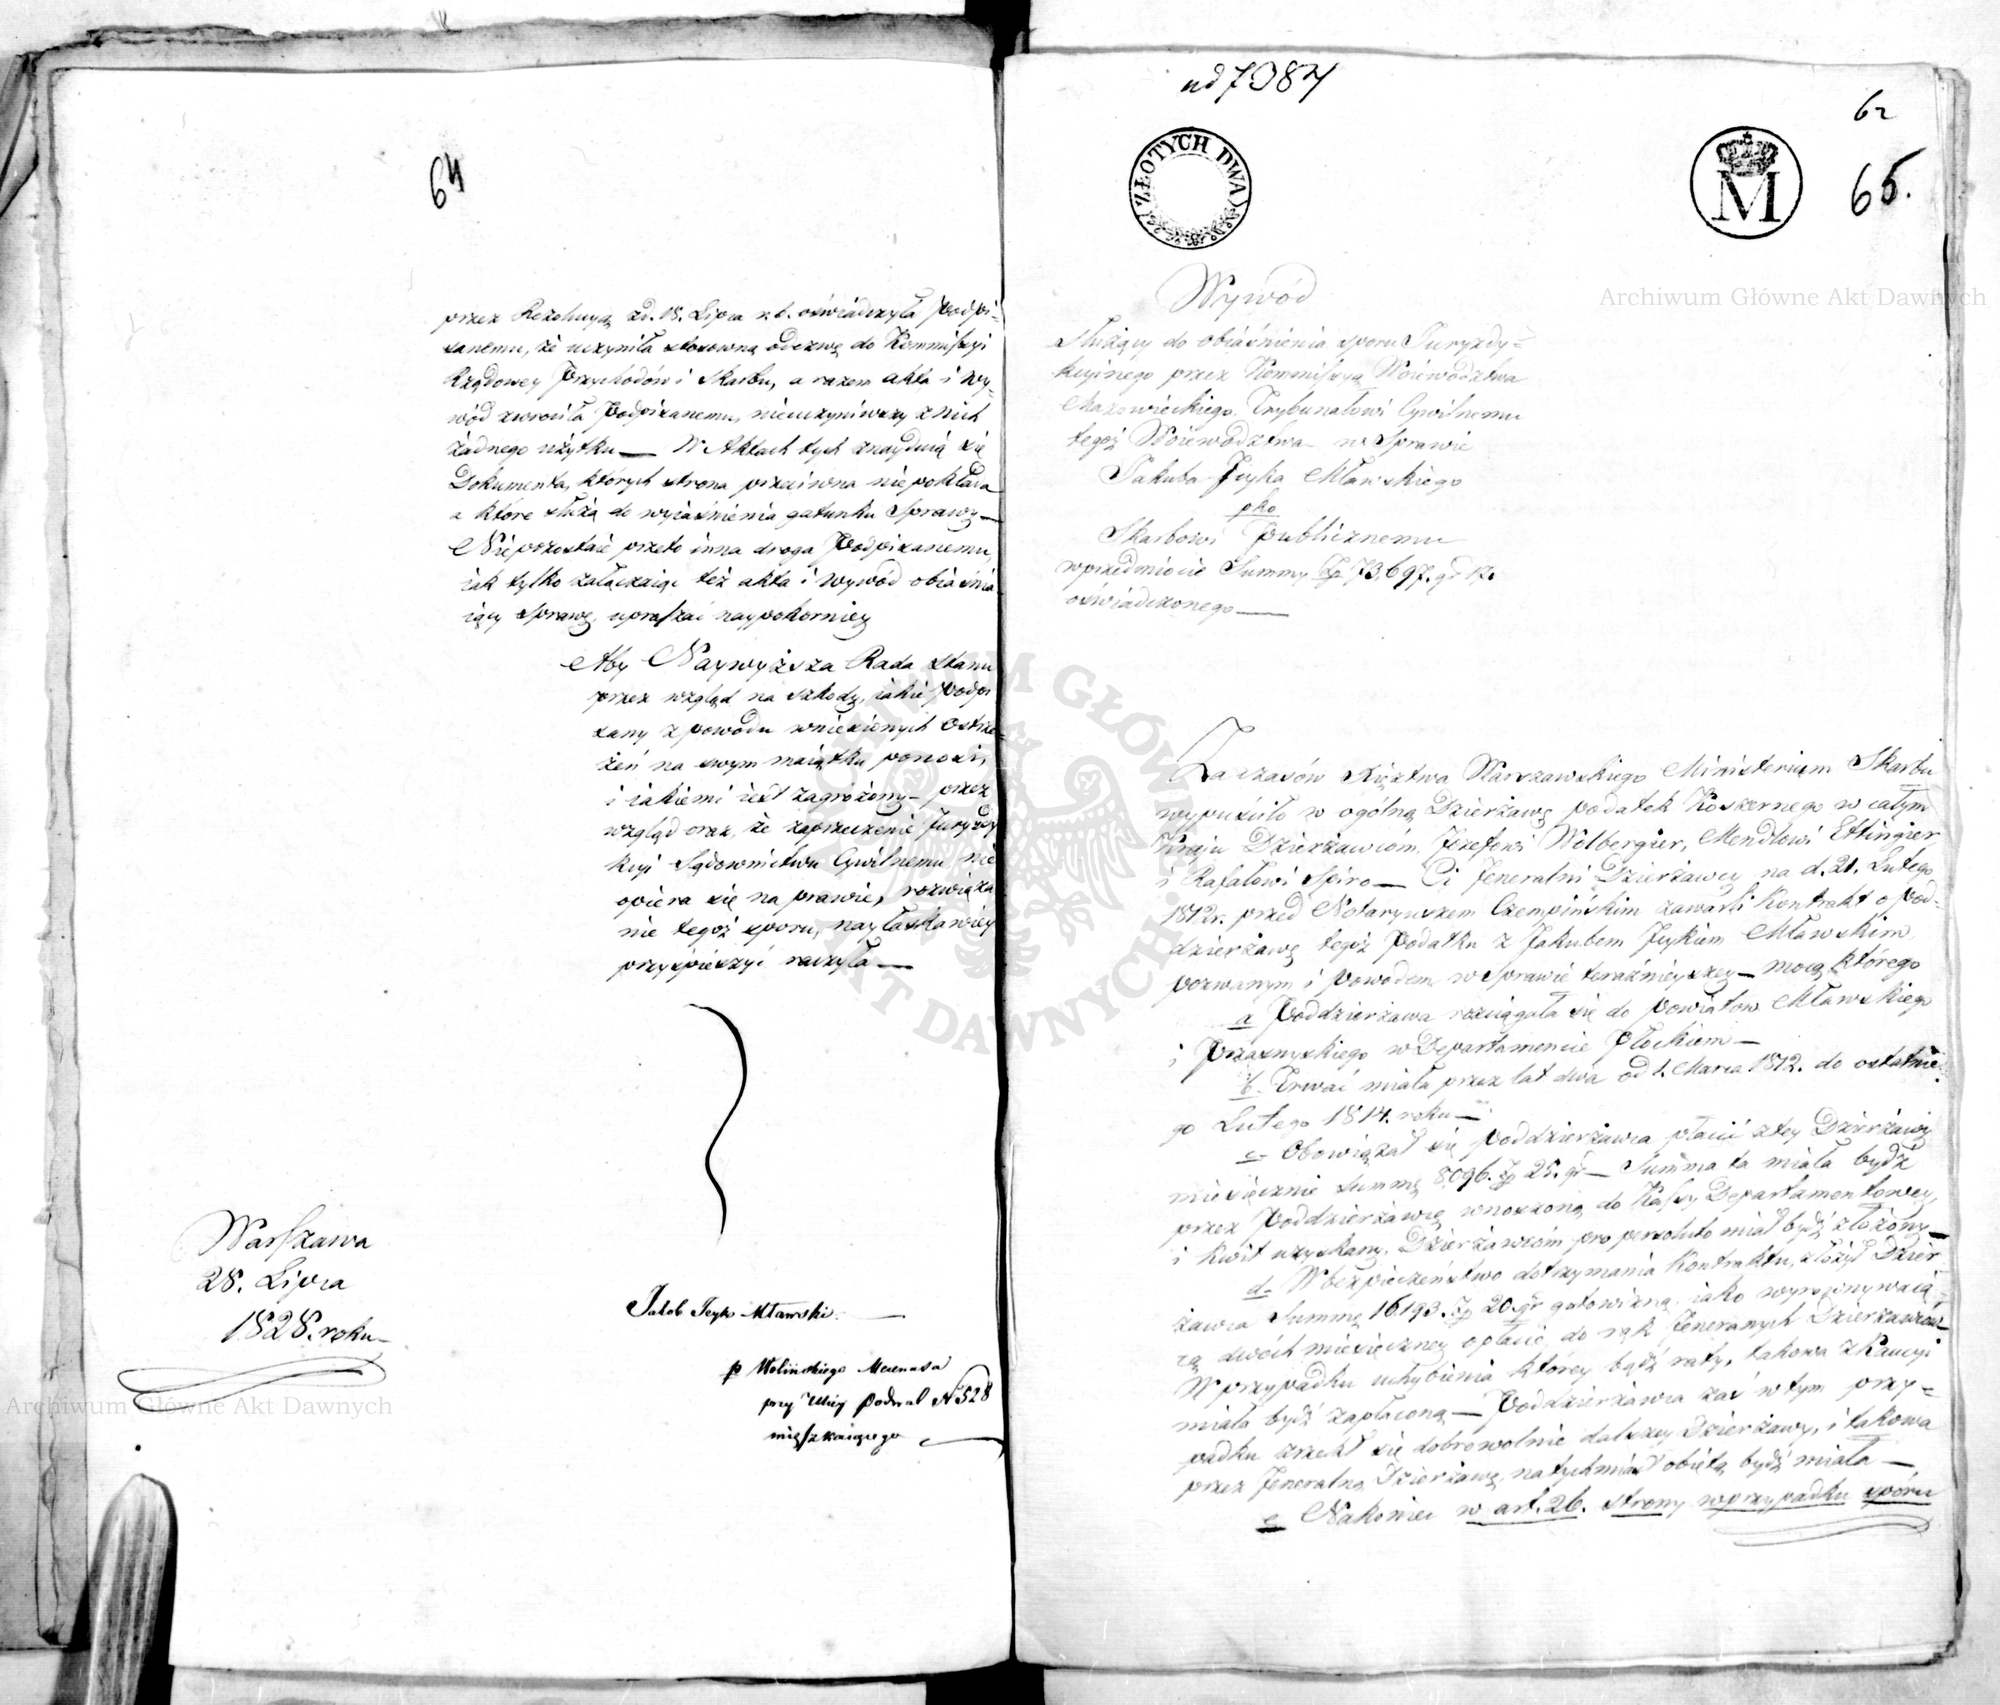 64
przez Rezolucyą zd. 18. Lipca r.b. oświadczyła Podpi-
sanemu, że uczyniła stosowną odezwę do Kommissyi
Rządowey Przychodów i Skarbu, a razem akta i wy-
wód zwróciła Podpisanemu, nieuczyniwszy z nich
żadnego użytku — W Aktach tych znayduią się
Dokumenta, których strona przeciwna niepokłada
a które służą do wyiaśnienia gatunku Sprawy —
Niepozostaie przeto inna droga Podpisanemu,
iak tylko załączaiąc też akta i wywód obiaśnia
iący sprawę, upraszać naypokorniey
Aby Naywyższa Rada Stanu
przez wzgląd na szkody, iakie Podpi
sany z powodu wniesionych ostrze-
żeń na swym maiątku ponosi,
i iakiemi iest zagrożony — przez
wzgląd oraz, że zaprzeczenie Juryzdy
kcyi Sądownictwu Cywilnemu, nie
opiera się na prawie, rozwiąza
nie tegoż sporu, nayłaskawiey
przyspieszyć raczyła —
Warszawa
28. Lipca
1828. roku
Jakob Jcyk Mławski
p Wolińskiego Mecenasa
przy Ulicy Podwal N 528
mięszkaiącego
ad 7087
62
65.
ZŁOTYCH DWA
M
Wywód
Służący do obiaśnienia sporu Juryzdy-
kcyinego przez Kommissyą Woiewództwa
Mazowieckiego, Trybunałowi Cywilnemu
tegoż Woiewództwa w Sprawie
Jakuba Jcyka Mławskiego
pko
Skarbowi Publicznemu
wprzedmiocie Summy Zp 73,697. gr 17.
oświadczonego —
Za czasów Xięztwa Warszawskiego Ministerium Skarbu
wypuściło w ogólną Dzierżawę podatek Koszernego w całym
Kraju Dzierżawcóm, Jozefowi Wolbergier, Mendlowi Ettingier,
i Rafałowi Spiro — Ci Jeneralni Dzierżawcy na d. 21. Lutego
1812r. przed Notaryuszem Czempińskim zawarli Kontrakt o pod-
dzierżawę tegoż Podatku z Jakubem Jcykiem Mławskim
pozwanym i Powodem w Sprawie teraźnieyszey — mocą którego
a Poddzierżawa rozciągała się do Powiatow Mławskiego
i Przasnyskiego w Departamencie Płockiem —
b. Trwać miała przez lat dwa od 1. Marca 1812. do ostatnie
go Lutego 1814. roku —
c. Obowiązał się Poddzierżawca płacić z tey Dzierżawy
miesięcznie summę 8096. Zp 25. gr — Summa ta miała bydź
przez Poddzierżawcę wnoszoną do Kassy Departamentowey,
i kwit uzyskany, Dzierżawcóm pro persoluto miał bydź złożony —
d. W bezpieczeństwo dotrzymania Kontraktu, złożył Dzier
żawca Summę 16193. Zp 20. gr gotowizną, iako wyrównywaią-
cą dwóch miesięczney opłacie do rąk Jeneranych Dzierżawców
W przypadku uchybienia którey bądź raty, takowa z Kaucyi
miała bydź zapłaconą — Poddzierżawca zaś w tym przy-
padku zrzekł się dobrowolnie dalszey Dzierżawy, i takowa
przez Jeneralną Dzierżawę, natychmiast obiętą bydź miała —
e Nakoniec w art. 26. strony wprzypadku sporu
Archiwum Główne Akt Dawnych
Archiwum Główne Akt Dawnych
ARCHIWUM GŁÓWNE AKT DAWNYCH